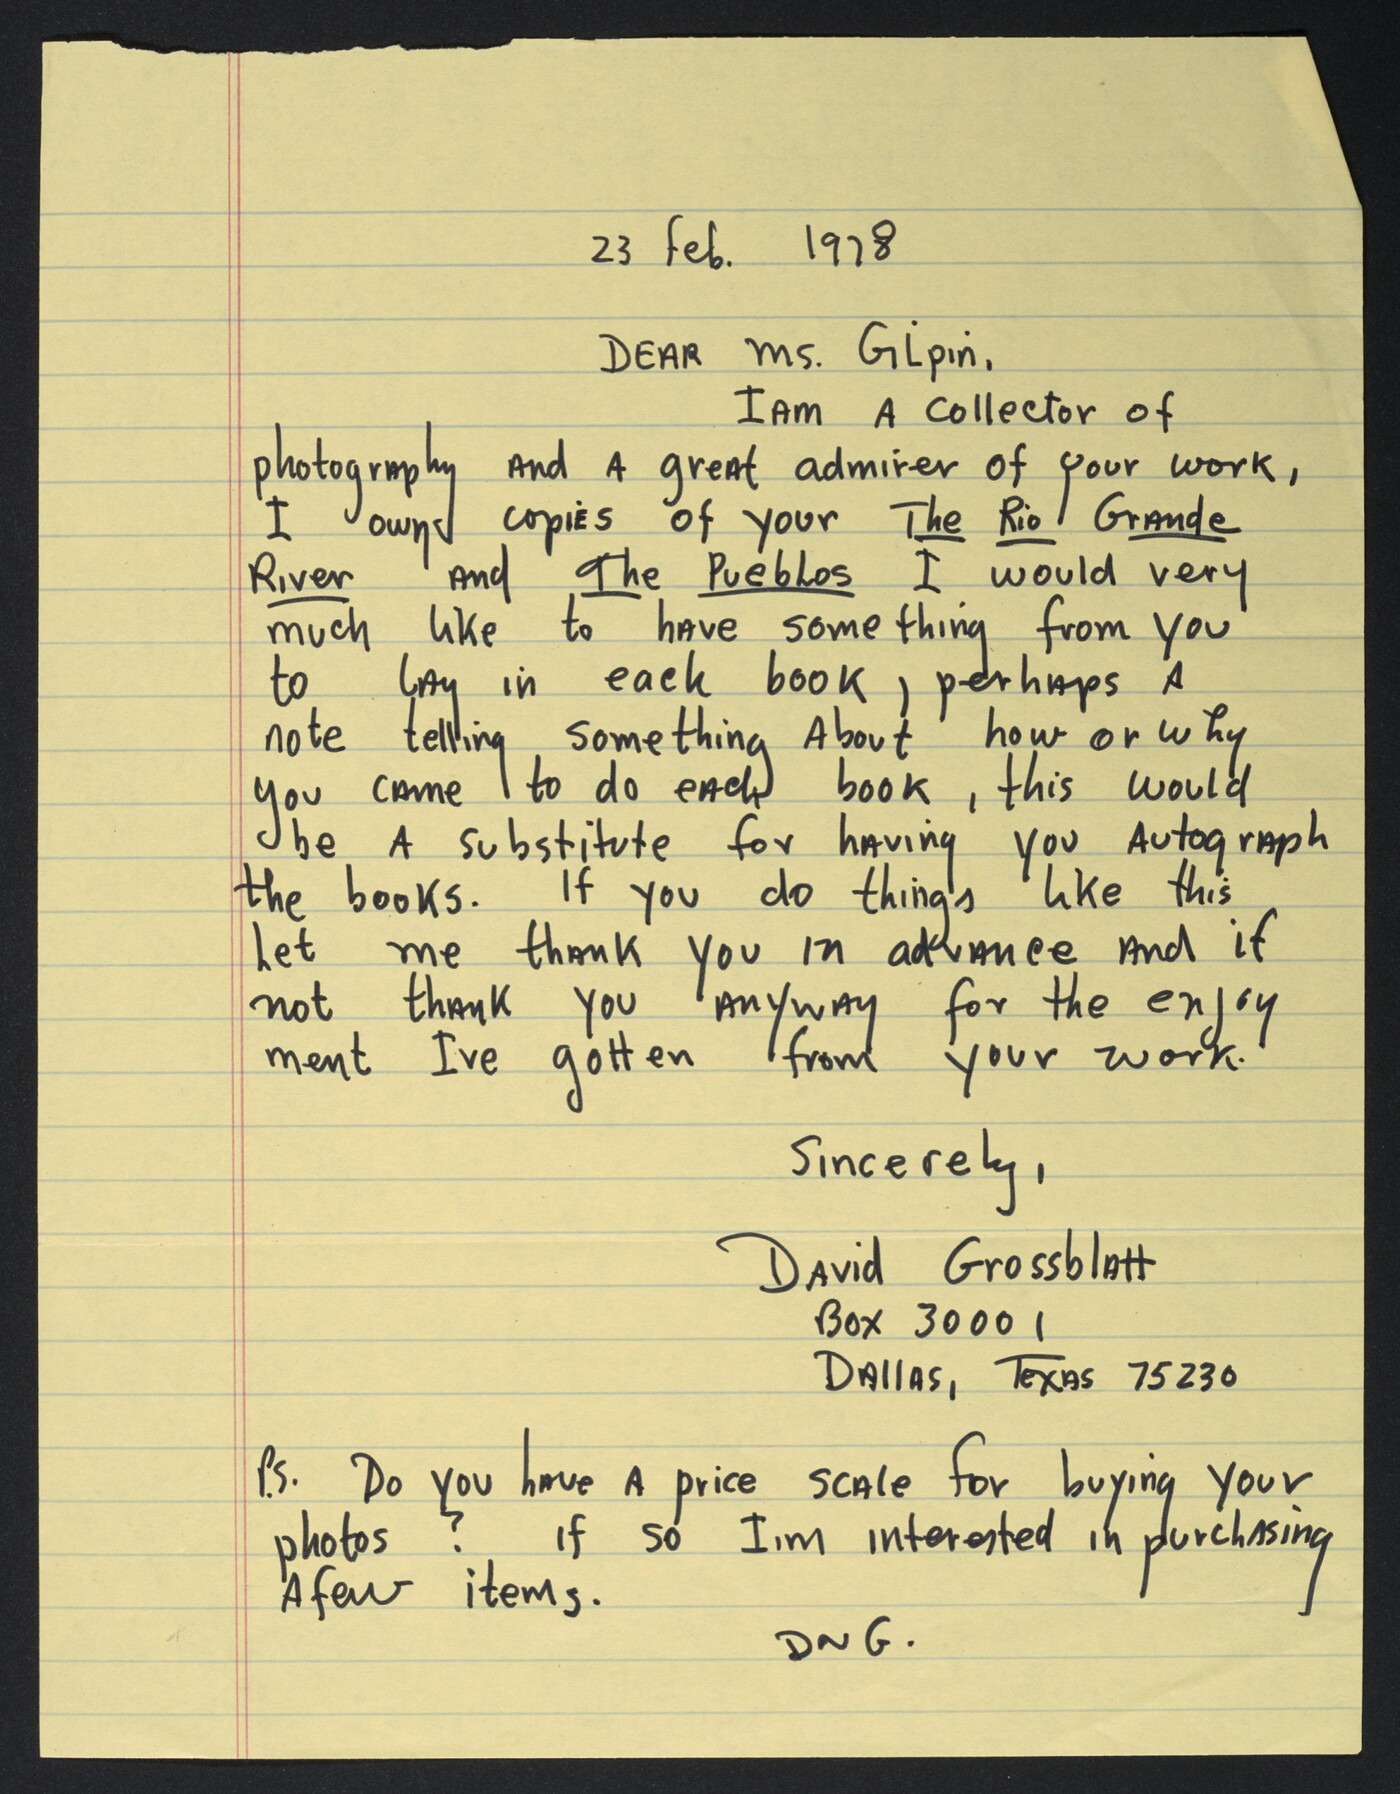 23 Feb. 1978
Dear Ms. Gilpin,
I am a collector of
photography and a great admirer of your work,
I own copies of your The Rio Grande
River and The Pueblos I would very
much like to have something from you
to lay in each book, perhaps a
note telling something about how or why
you came to do each book, this would
be a substitute for having you autograph
the books. If you do things like this
let me thank you in advance and if
not thank you anyway for the enjoy
ment I've gotten from your work.
Sincerely,
David Grossblatt
Box 30001
Dallas, Texas 75230
P.S. Do you have a price scale for buying your
photos? if so I'm interested in purchasing
a few items.
DNG.